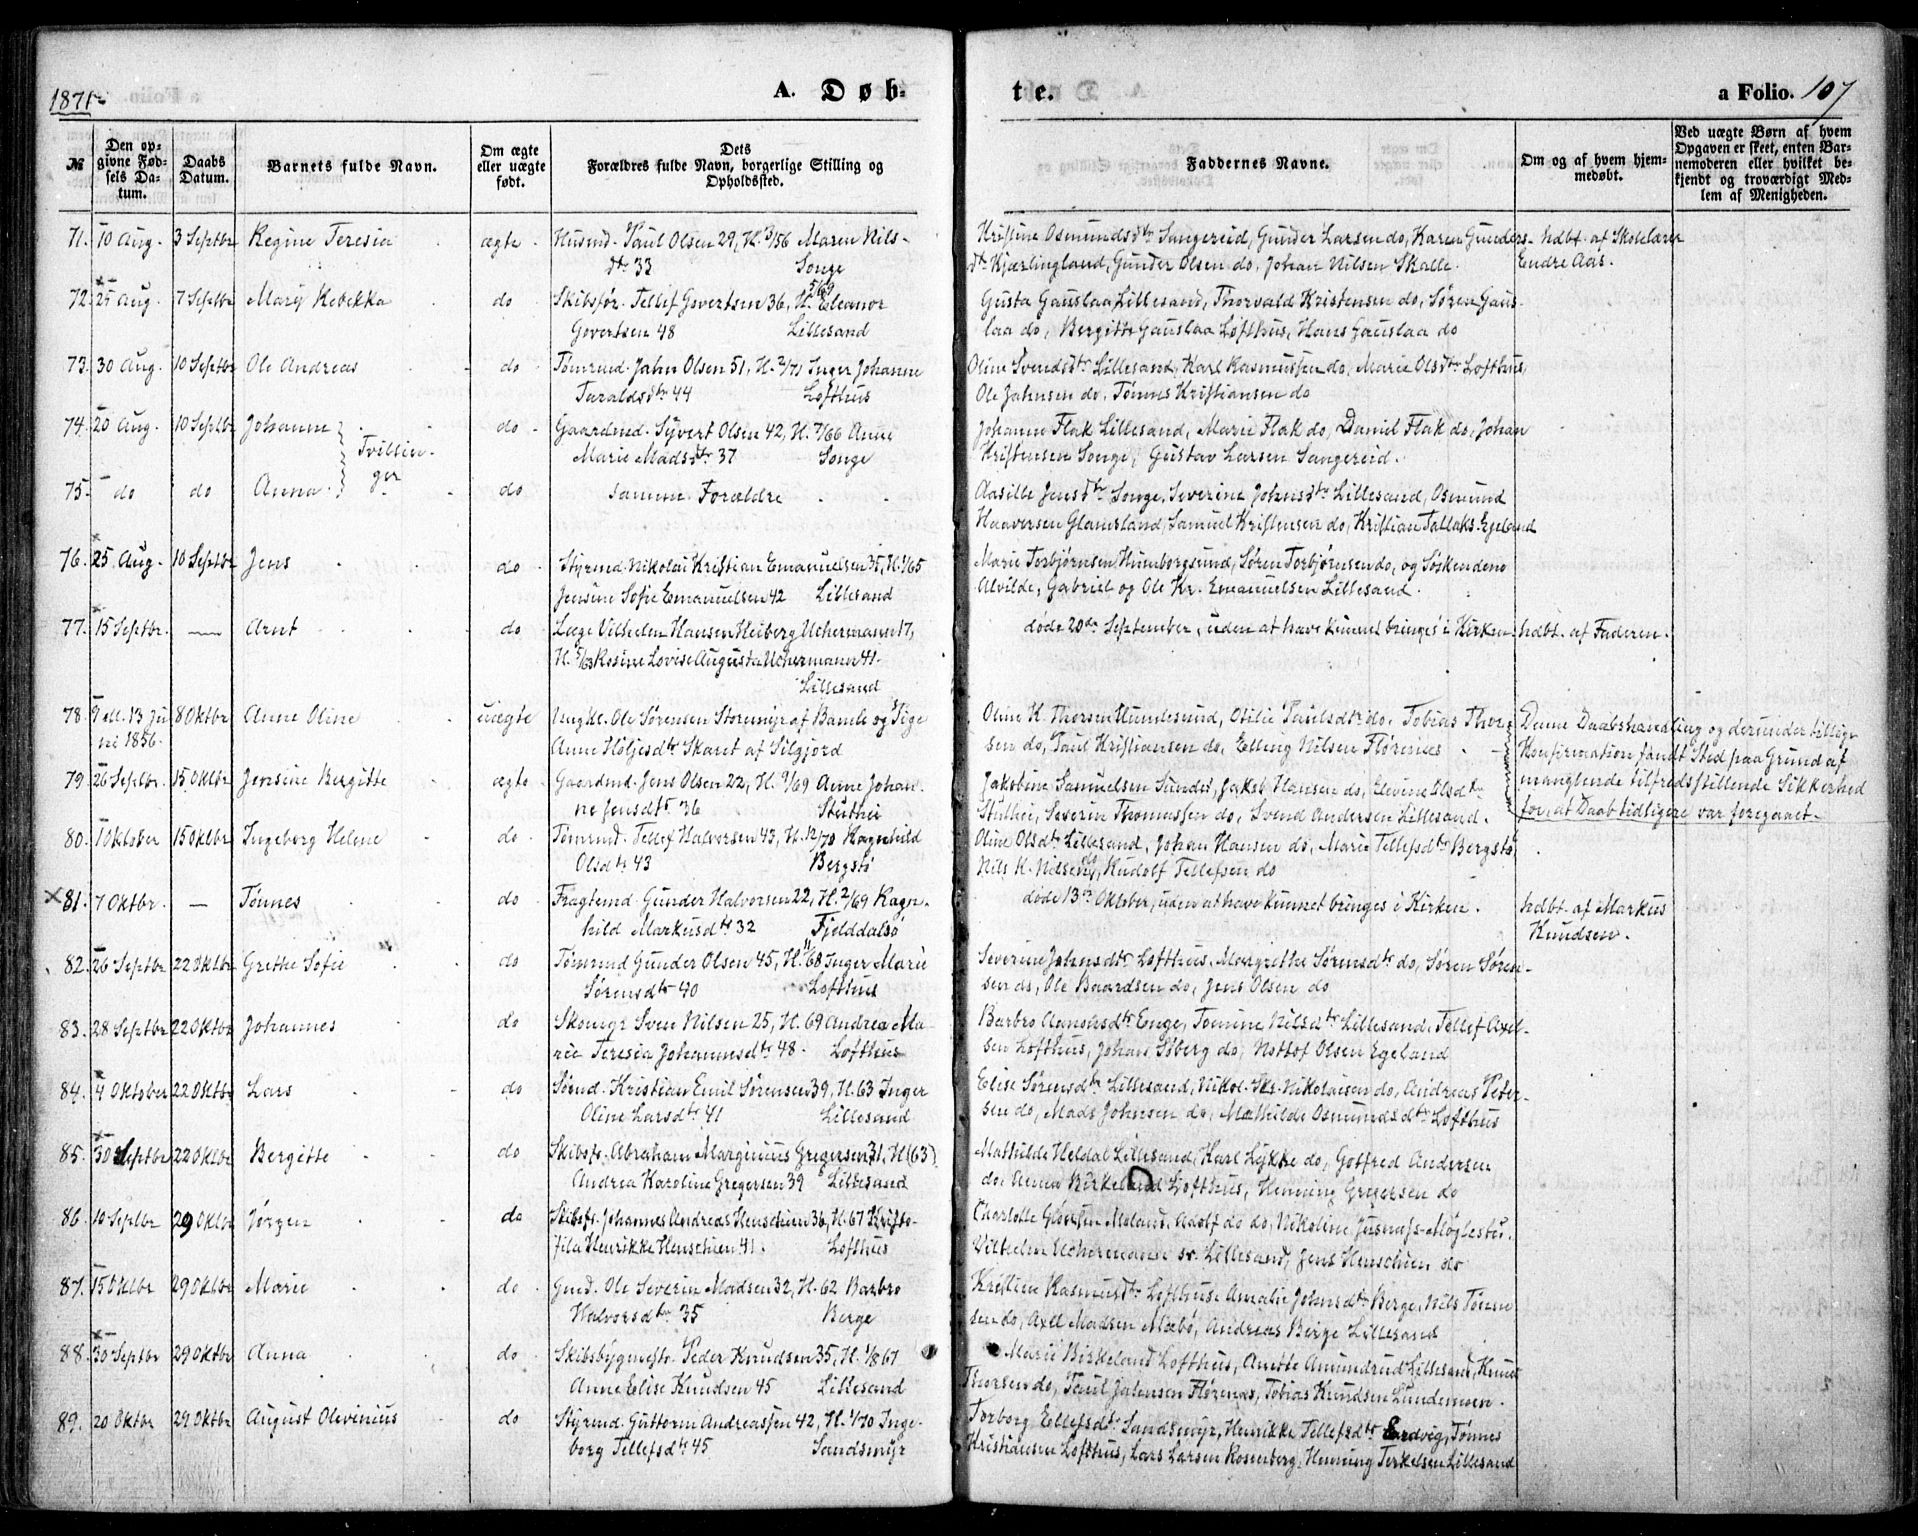 1871.
A. Døb-
te.
a Folio. 107
№
Den op-
givne Fød-
sels Da-
tum.
Daabs
Datum.
Barnets fulde Navn.
Om ægte
eller uægte
født.
Dets
Forældres fulde Navn, borgerlige Stilling og
Opholdssted.
Faddernes Navne.
Om og af hvem hjem-
medøbt.
Ved uægte Børn af hvem
Opgaven er skeet, enten Bar-
nemoderen eller hvilket be-
kjendt og troværdigt Med-
lem af Menigheden.
71. 10 Aug. 3 Septbr Regine Teresia ægte Husmd. Paul Olsen 29, H. 3/56 Maren Nils- Kristine Osmundsdtr Sangereid, Gunder Larsen do, Karen Gunders- hdbt. af Skolelærer
dtr 33 Songe dtr Kjærlingland, Gunder Olsen do, Johan Nilsen Skalle. Endre Aas.
72. 25 Aug. 7 Septbr Mary Rebekka do Skibsfør. Tellef Govertsen 36, H. 5/69 Eleanor Gusta Gauslaa Lillesand, Thorvald Kristensen do, Søren Gaus-
Govertsen 48 Lillesand laa do, Bergitte Gauslaa Lofthus, Hans Gauslaa do
73. 30 Aug. 10 Septbr Ole Andreas do Tømrmd. Jahn Olsen 51, H. 2/71 Inger Johanne Oline Svendsdtr Lillesand, Karl Rasmussen do, Marie Olsdtr Lofthus,
Taraldsdtr 44 Lofthus Ole Jahnsen do, Tønnes Kristiansen do
74. 20 Aug. 10 Septbr Johanne Tvillin- do Gaardmd. Syvert Olsen 42, H. 7/66 Anne Johanne Flak Lillesand, Marie Flak do, Daniel Flak do, Johan
Marie Madsdtr 37 Songe Kristensen Songe, Gustav Larsen Sangereid.
75. do do Anna. ger do samme Forældre Aasille Jensdtr Songe, Severine Johnsdtr Lillesand, Osmund
Haaversen Glamsland, Samuel Kristensen do, Kristian Tallaks. Egeland
76. 25 Aug. 10 Septbr Jens do Styrmd. Nikolai Kristian Emanuelsen 35, H. 1/65 Marie Torbjørnsen Humborgsund, Søren Torbjørnsen do, og Søskendene
Jensine Sofie Emanuelsen 42 Lillesand Alvilde, Gabriel og Ole Kr. Emanuelsen Lillesand.
77. 15 Septbr. — Arnt do Læge Vilhelm Hansen Heiberg Uchermann 17, døde 20de September, uden at have kunnet bringes i Kirken. hdbt. af Faderen.
H. 5/63 Rosine Lovise Augusta Uchermann 41.
Lillesand
78. 9 ell. 13 Ju- 8 Oktbr Anne Oline uægte Ungkl. Ole Sørensen Stormyr af Bamle og Pige Oline K. Thorsen Humlesund, Otilie Paulsdtr do, Tobias Thor- Denne Daabshandling og derunder tillige
ni 1856. Anne Høljesdtr Skaret af Siljord sen do, Paul Kristiansen do, Elling Nilsen Flørenes Konfirmation fandt Sted paa Grund af
79. 26 Septbr. 15 Oktbr Jensine Bergitte ægte Gaardmd. Jens Olsen 22, H. 9/69 Anne Johan- Jakobine Samuelsen Sundet, Jakob Hansen do, Elevine Olsdtr manglende tilfredsstillende Sikkerhed
ne Jensdtr 36 Stuthei Stuthei, Severin Thomassen do, Svend Andersen Lillesand. for, at Daab tidligere var foregaaet.
80. 1 Oktober 15 Oktbr Ingeborg Helene do Tømrmd. Tellef Halvorsen 43, H. 12/70 Ragnhild Oline Olsdtr Lillesand, Johan Hansen do, Marie Tellefsdtr Bergstø,
Olsdtr 43 Bergstø Nils K. Nilsen do, Rudolf Tellefsen do
81. 7 Oktbr. — Tønnes do Fragtemd. Gunder Halvorsen 22, H. 2/69 Ragn- døde 13de Oktober, uden at have kunnet bringes i Kirken. hdbt. af Markus
hild Markusdtr 32 Fjelddalsø Knudsen.
82. 26 Septbr 22 Oktbr Grethe Sofie do Tømrmd Gunder Olsen 45, H. 11/68 Inger Marie Severine Johnsdtr Lofthus, Margrethe Sørensdtr do, Søren Søren-
Sørensdtr 40 Lofthus sen do, Ole Baardsen do, Jens Olsen do
83. 28 Septbr 22 Oktbr Johannes do Skomgr Sven Nilsen 25, H. 69 Andrea Ma- Barbro Aanonsdtr Enge, Tomine Nilsdtr Lillesand, Tellef Axel-
rie Teresia Johannesdtr 48. Lofthus sen Lofthus, Johan Søberg do, Nottof Olsen Egeland
84. 4 Oktober 22 Oktbr Lars do Sømd. Kristian Emil Sørensen 39, H. 63 Inger Elise Sørensdtr Lillesand, Nikol. Skr. Nikolaisen do, Andreas Peter-
Oline Larsdtr 41 Lillesand sen do, Mads Johnsen do, Mathilde Osmundsdtr Lofthus
85. 30 Septbr 22 Oktbr Bergitte do Skibsfø. Abraham Marginius Gregersen 31, H. (63) Mathilde Heldal Lillesand, Karl Lykke do, Gotfred Andersen
Andrea Karoline Gregersen 39 Lillesand do, Anna Birkeland Lofthus, Henning Gregersen do
86. 10 Septbr 29 Oktbr Jørgen do Skibsfø. Johannes Andreas Henschien 36, H. 67 Kristo- Charlotte Moland, Adolf do do, Nikoline Møglestu,
fila Henrikke Henschien 41. Lofthus Vilhelm Uchermann sr. Lillesand, Jens Henschien do
87. 15 Oktbr 29 Oktbr Marie do Gmd. Ole Severin Madsen 32, H. 62 Barbro Kristine Rasmusdtr Lofthus, Amalie Johnsdtr Berge, Nils Tønne-
Halvorsdtr 35 Berge sen do, Axel Madsen Mæbø, Andreas Berge Lillesand
88. 30 Septbr 29 Oktbr Anna do Skibsbygmestr. Peder Knudsen 35, H. 1/8 67 Marie Birkeland Lofthus, Anette Amundrud Lillesand, Knud
Anne Elise Knudsen 45 Lillesand Thorsen do, Paul Johnsen Flørenes, Tobias Knudsen Lundemoen.
89. 20 Oktbr 29 Oktbr August Olevinius do Styrmd. Guttorm Andreassen 42, H. 1/70 Inge- Torborg Ellefsdtr Sandsmyr, Henrikke Tellefsdtr Eardvig, Tønnes
borg Tellefsdtr 45 Sandsmyr Kristiansen Lofthus, Lars Larsen Rosenberg, Henning Terkelsen Lillesand